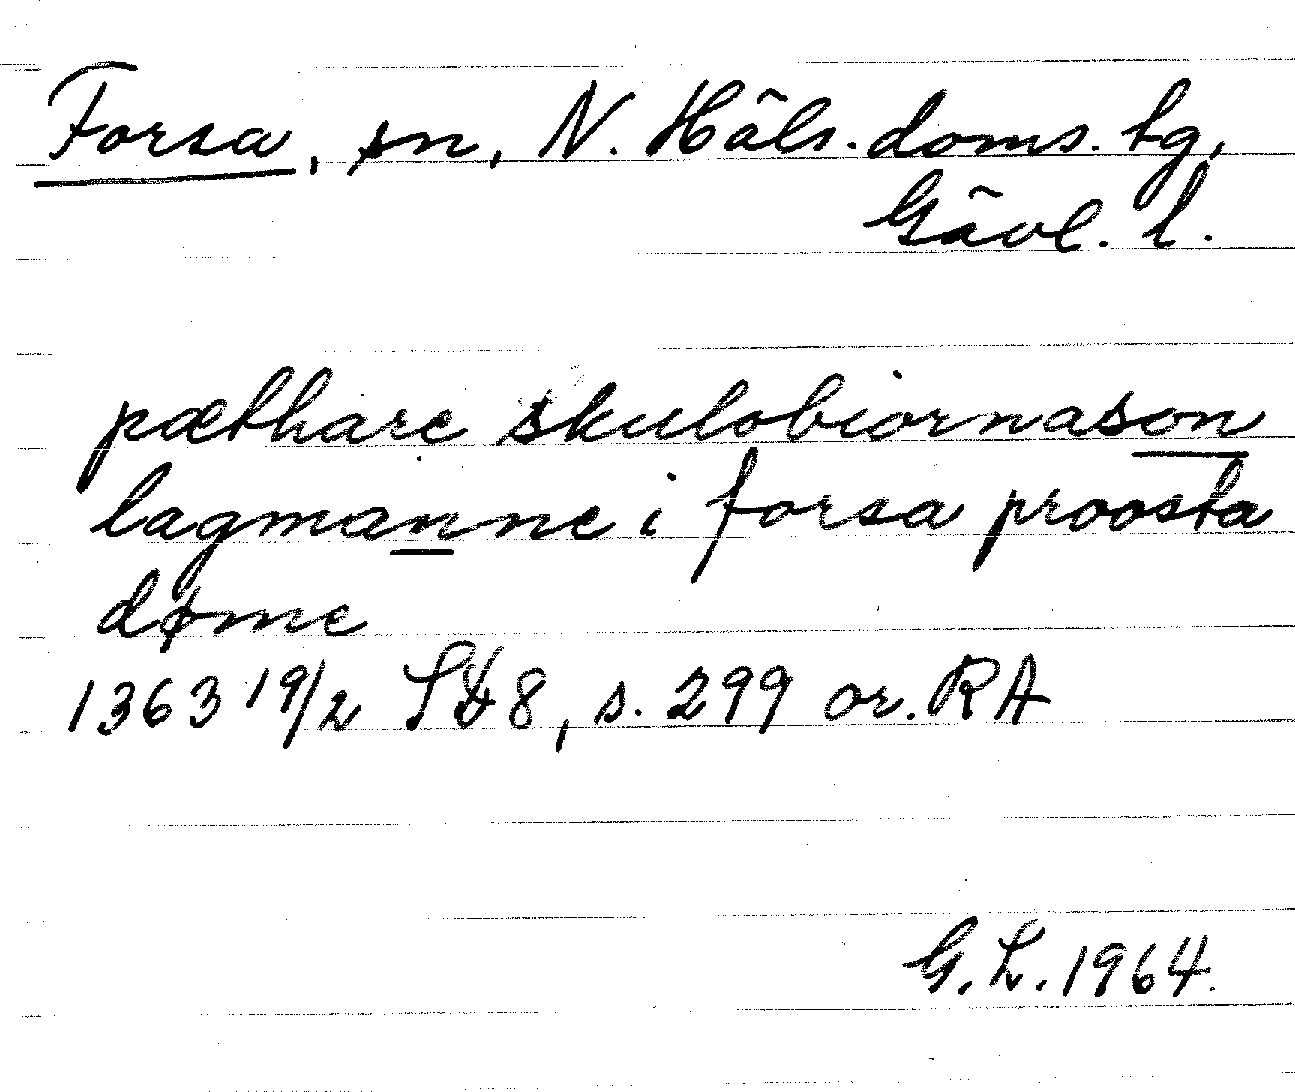 Forsa, sn, N. Häls. doms. tg,
Gävl. l.
pæthare skulobiornason
lagmanne i forsa proosta
døme
1363 19/2 SD 8, s. 299 or. RA
G. L. 1964.